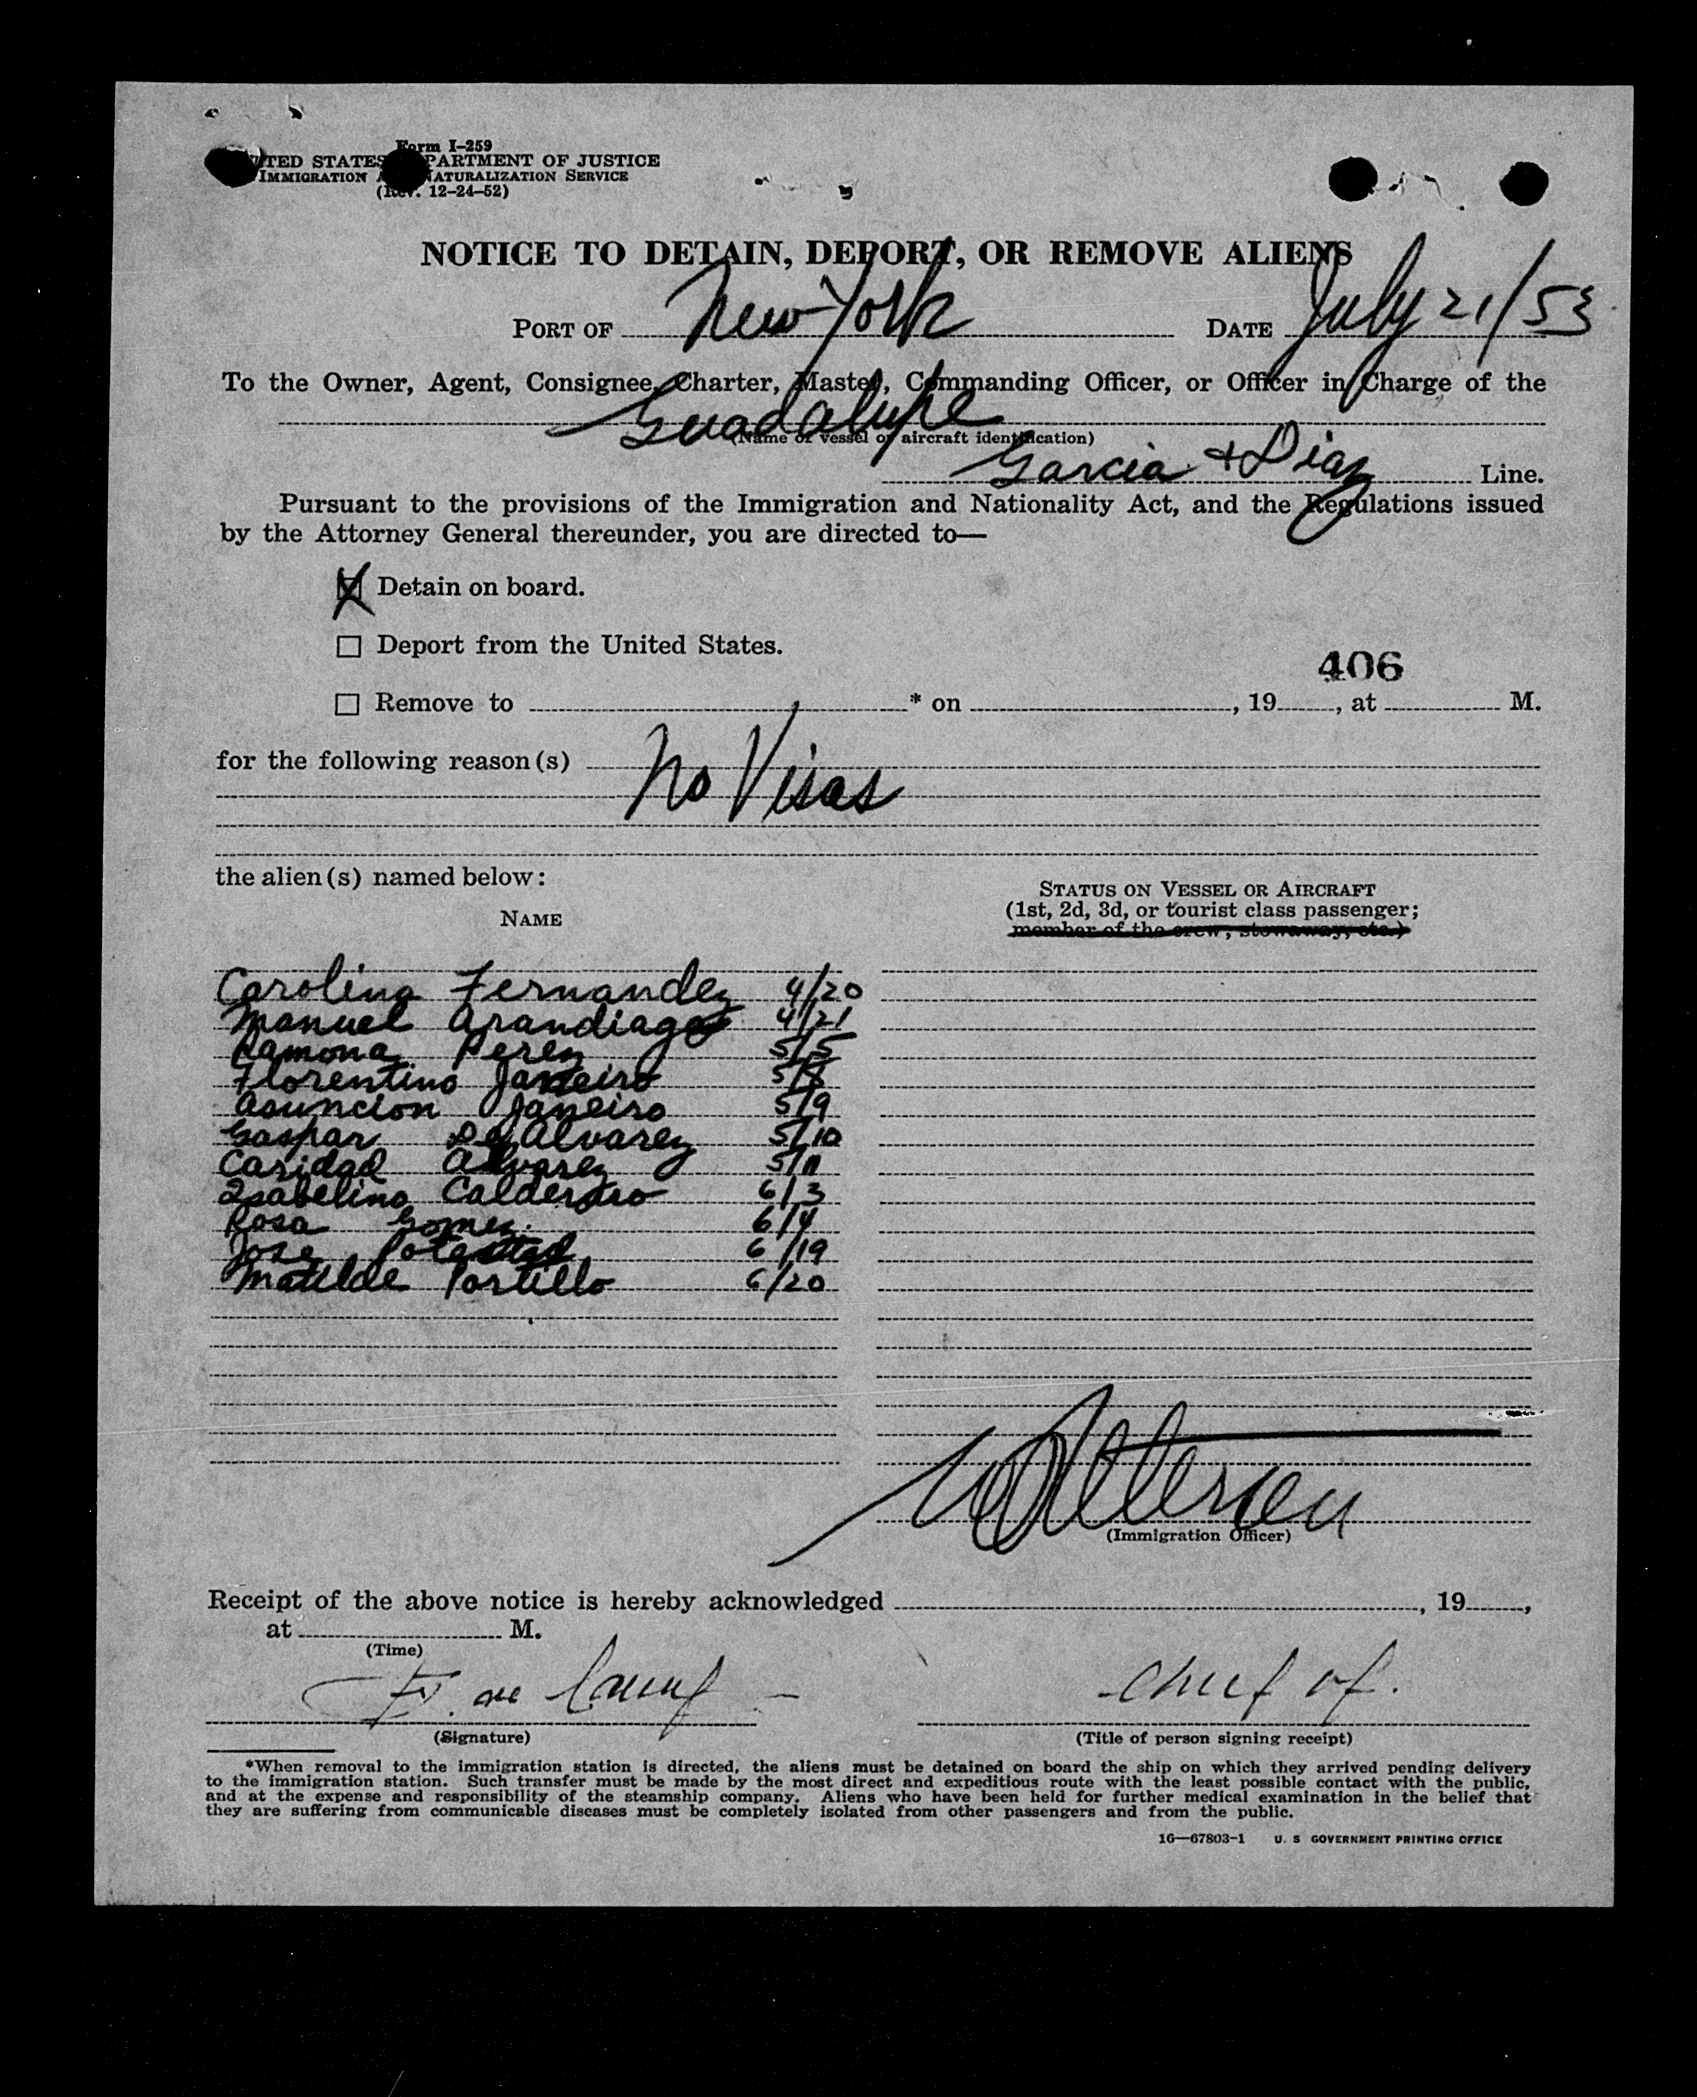 Form I-259
UNITED STATES DEPARTMENT OF JUSTICE
IMMIGRATION AND NATURALIZATION SERVICE
(Rev. 12-24-52)
NOTICE TO DETAIN, DEPORT, OR REMOVE ALIENS
PORT OF New York DATE July 21/53
To the Owner, Agent, Consignee, Charter, Master, Commanding Officer, or Officer in Charge of the
Guadalupe
(Name of vessel or aircraft identification)
Garcia + Diaz Line.
Pursuant to the provisions of the Immigration and Nationality Act, and the Regulations issued
by the Attorney General thereunder, you are directed to—
X Detain on board.
Deport from the United States.
406
Remove to * on , 19 , at M.
for the following reason(s) No Visas
the alien(s) named below:
STATUS ON VESSEL OR AIRCRAFT
(1st, 2d, 3d, or tourist class passenger;
member of the crew; stowaway, etc.)
NAME
Carolina Fernandez 4/20
Manuel Arandiaga 4/21
Ramona Perez 5/5
Florentino Janeiro 5/8
Asuncion Janeiro 5/9
Gaspar Alvarez 5/10
Caridad Alvarez 5/11
Isabelino 6/3
Rosa Gomez 6/4
Jose 6/19
Matilde Portillo 6/20
(Immigration Officer)
Receipt of the above notice is hereby acknowledged , 19 ,
at M.
(Time)
Chief of.
(Signature) (Title of person signing receipt)
*When removal to the immigration station is directed, the aliens must be detained on board the ship on which they arrived pending delivery
to the immigration station. Such transfer must be made by the most direct and expeditious route with the least possible contact with the public,
and at the expense and responsibility of the steamship company. Aliens who have been held for further medical examination in the belief that
they are suffering from communicable diseases must be completely isolated from other passengers and from the public.
16—67803-1 U. S GOVERNMENT PRINTING OFFICE